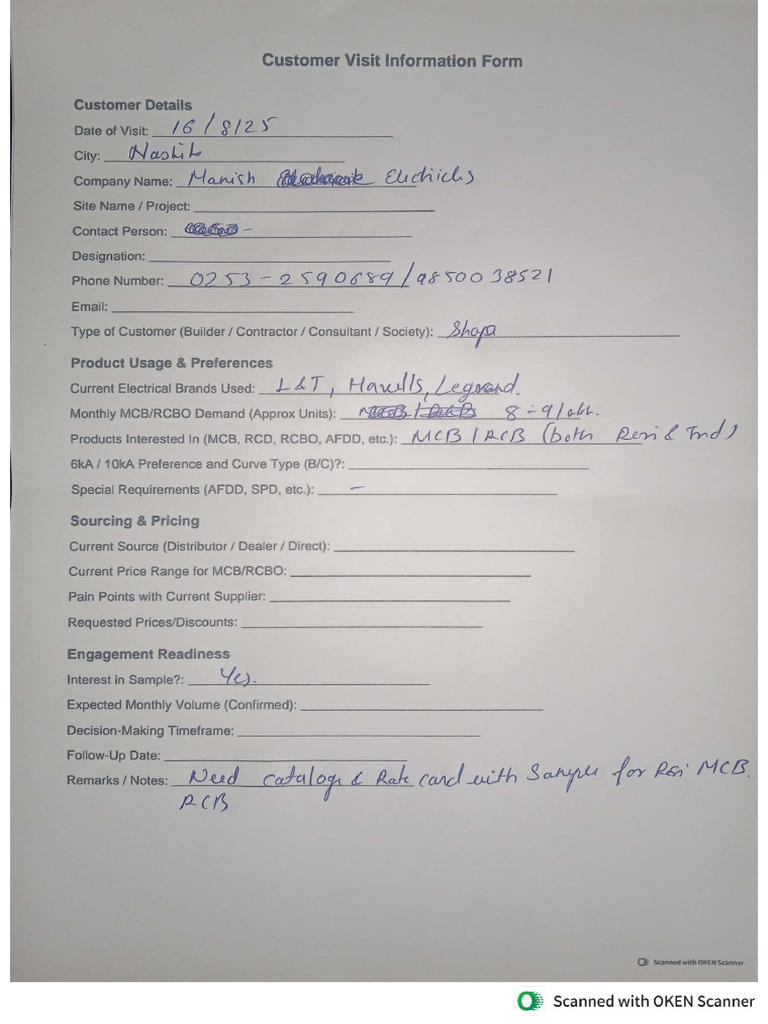 Customer Visit Information Form
Customer Details
Date of Visit: 16/8/25
City: Nashik
Company Name: Manish Electricls
Site Name / Project:
Contact Person: -
Designation:
Phone Number: 0253-2590689/9850038521
Email:
Type of Customer (Builder / Contractor / Consultant / Society): Shop
Product Usage & Preferences
Current Electrical Brands Used: L&T, Havells, Legrand.
Monthly MCB/RCBO Demand (Approx Units): 8-9/
Products Interested In (MCB, RCD, RCBO, AFDD, etc.): MCB / RCB (both Resi & Ind)
6kA / 10kA Preference and Curve Type (B/C)?:
Special Requirements (AFDD, SPD, etc.): -
Sourcing & Pricing
Current Source (Distributor / Dealer / Direct):
Current Price Range for MCB/RCBO:
Pain Points with Current Supplier:
Requested Prices/Discounts:
Engagement Readiness
Interest in Sample?: Yes.
Expected Monthly Volume (Confirmed):
Decision-Making Timeframe:
Follow-Up Date:
Remarks / Notes: Need catalogs & Rate card with Sample for Resi MCB.
RCB
Scanned with OKEN Scanner
Scanned with OKEN Scanner